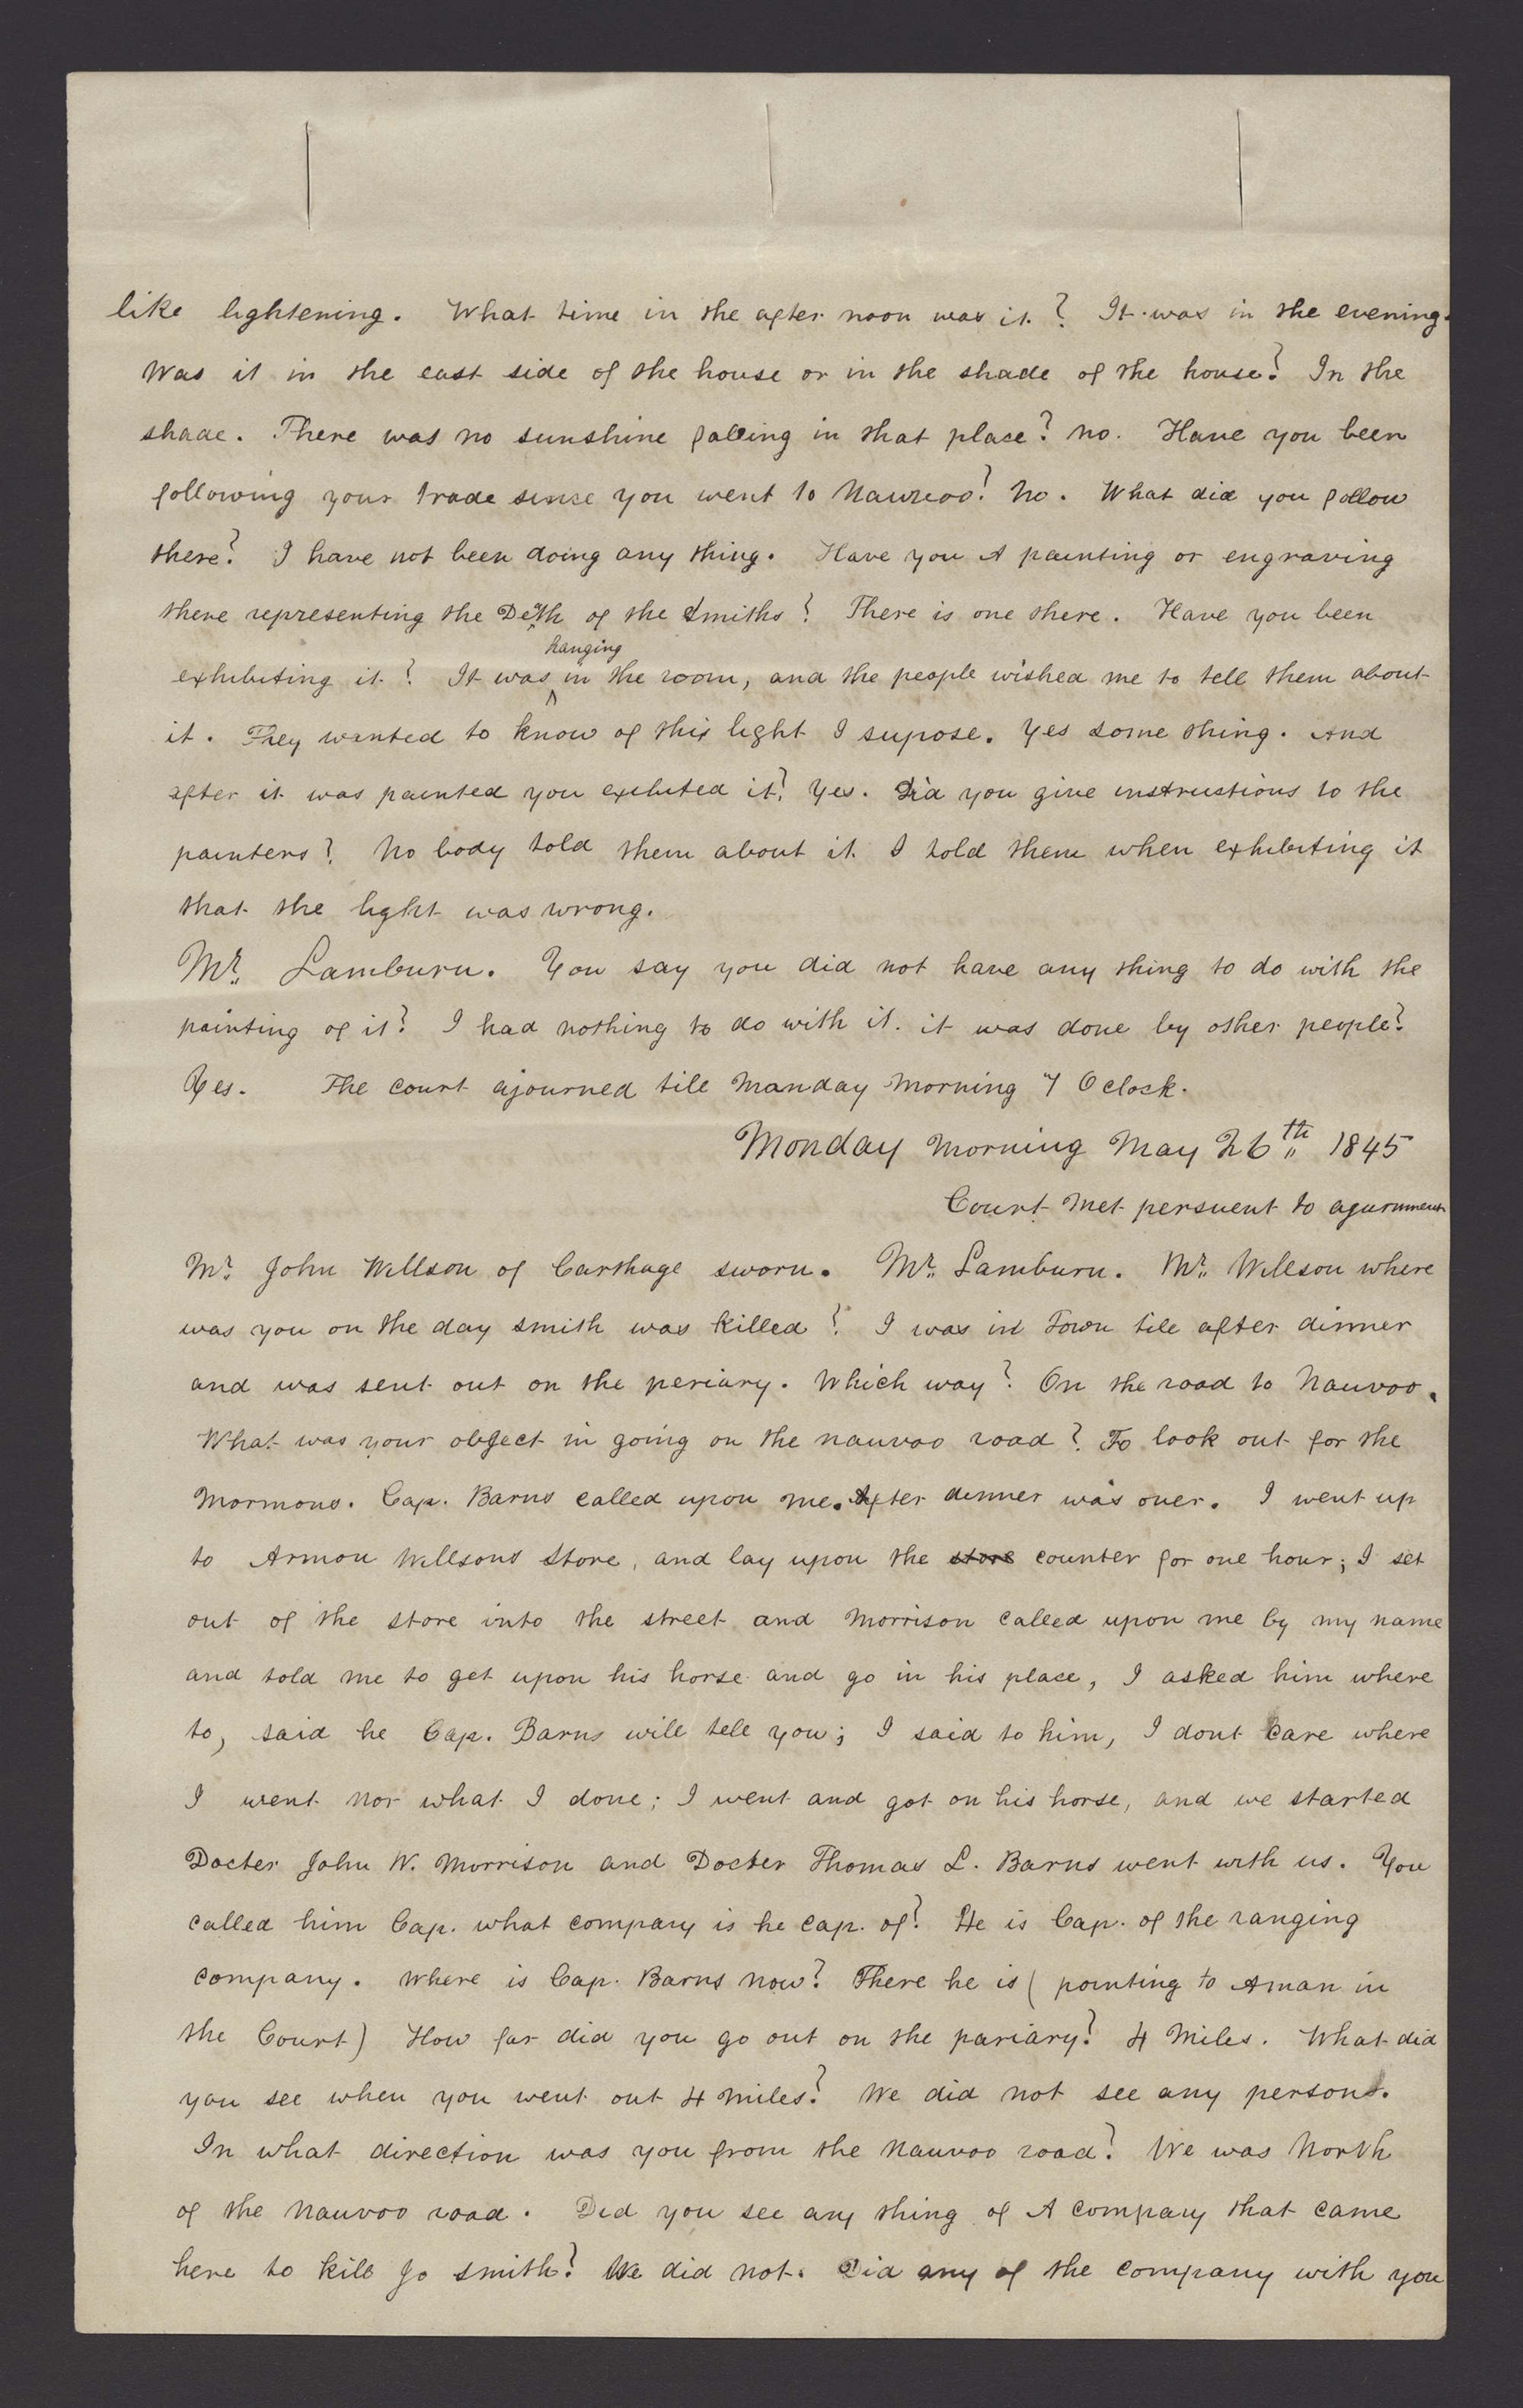 like lightening. What time in the after noon was it? It was in the evening.
Was it in the east side of the house or in the shade of the house? In the
shade. There was no sunshine falling in that place? no. Have you been
following your trade since you went to Nauvoo? No. What did you follow
there? I have not been doing any thing. Have you A painting or engraving
there representing the Deth of the Smiths? There is one there. Have you been
exhibiting it? It was hanging in the room, and the people wished me to tell them about
it. They wanted to know of this light I supose. Yes some thing. And
after it was painted you exebited it? Yes. Did you give instructions to the
painters? No body told them about it I told them when exhibiting it
that the light was wrong.
Mr. Lamburn. You say you did not have any thing to do with the
painting of it? I had nothing to do with it. it was done by other people?
Yes. The court ajourned till Manday Morning 7 Oclock.
Monday Morning May 26th 1845
Court Met persuent to agurnment
Mr. John Willson of Carthage sworn. Mr. Lamburn. Mr. Willson where
was you on the day smith was killed? I was in Town till after dinner
and was sent out on the periary. Which way? On the road to Nauvoo.
What was your object in going on the nauvoo road? To look out for the
Mormons. Cap. Barns called upon me. After dinner was over. I went up
to Armon Willsons store, and lay upon the store counter for one hour; I set
out of the store into the street and Morrison called upon me by my name
and told me to get upon his horse and go in his place, I asked him where
to, said he Cap. Barns will tell you; I said to him, I dont care where
I went nor what I done; I went and got on his horse, and we started
Docter John W. Morrison and Docter Thomas L. Barns went with us. You
called him Cap. what company is he cap. of? He is Cap. of the ranging
company. Where is Cap. Barns now? There he is (pointing to A man in
the Court) How far did you go out on the pariary? 4 Miles. What did
you see when you went out 4 miles? We did not see any persons.
In what direction was you from the Nauvoo road? We was North
of the Nauvoo road. Did you see any thing of A company that came
here to kill Jo smith? We did not. Did any of the company with you